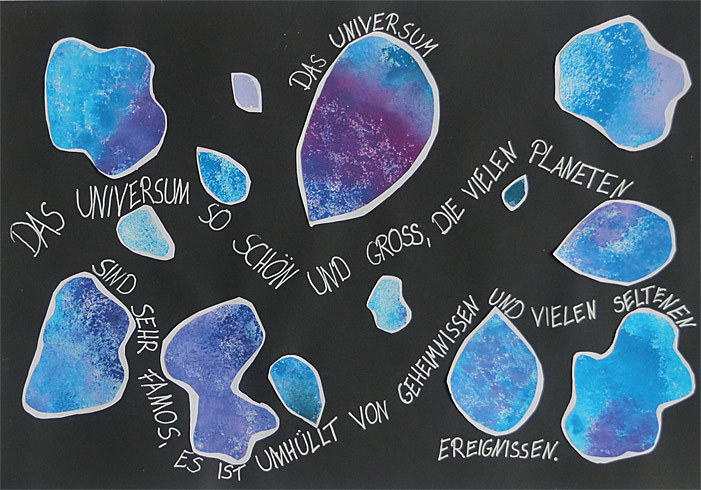 DAS UNIVERSUM
DAS UNIVERSUM SO SCHÖN UND GROSS, DIE VIELEN PLANETEN
SIND SEHR FAMOS, ES IST UMHÜLLT VON GEHEIMNISSEN UND VIELEN SELTENEN
EREIGNISSEN.